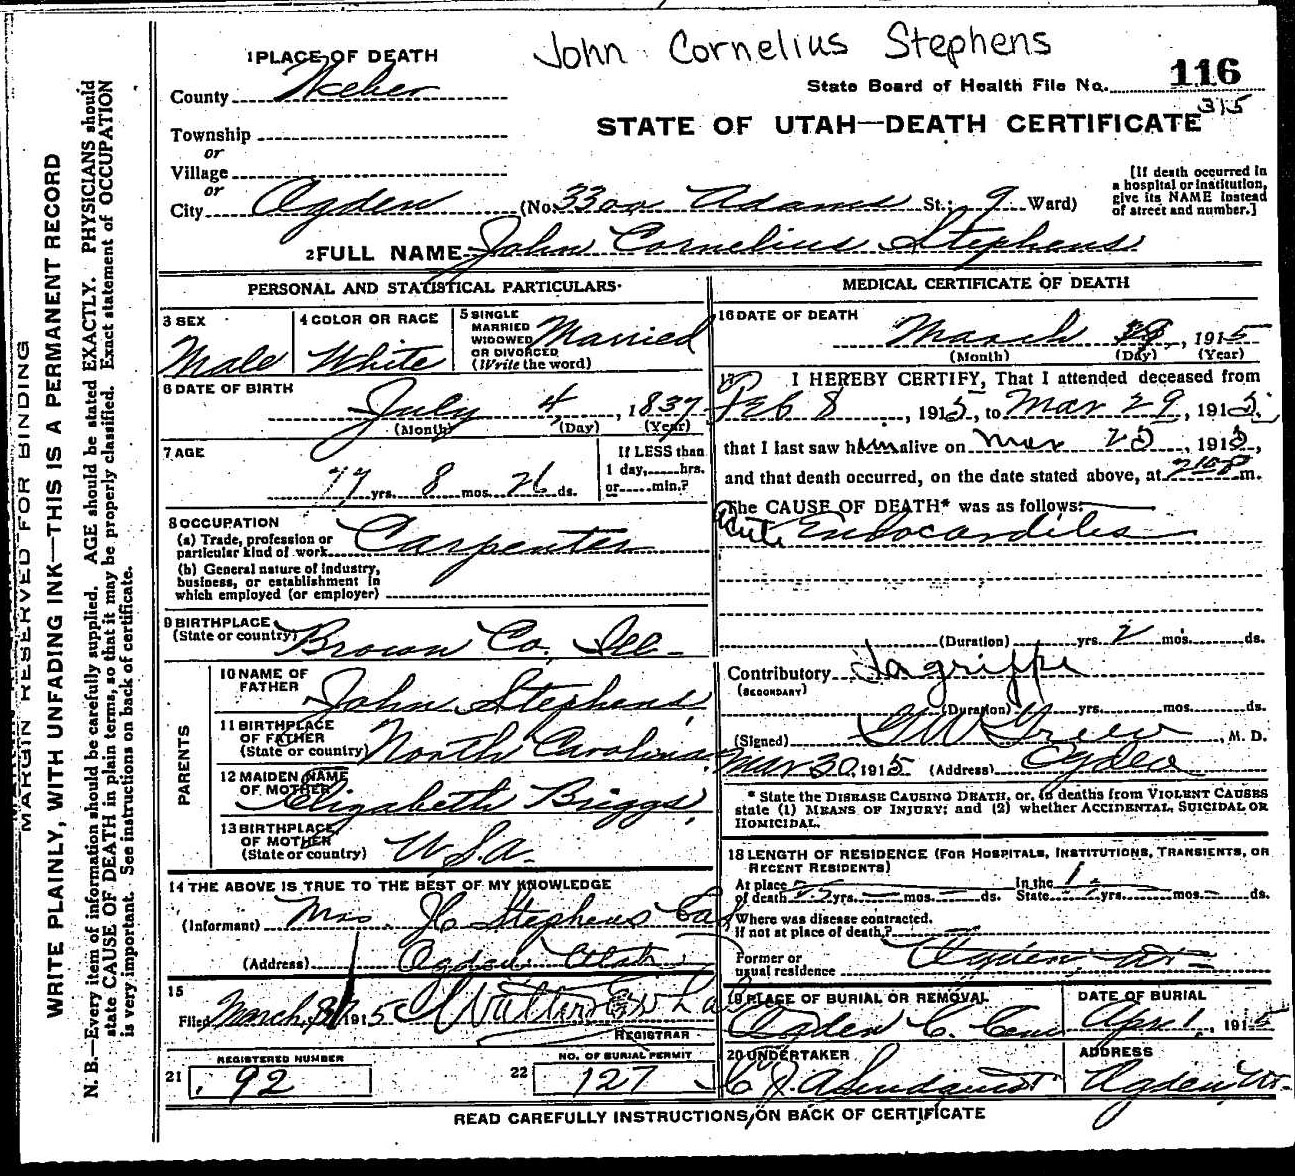 John Cornelius Stephens
1 PLACE OF DEATH
County Weber
State Board of Health File No. 116
315
Township
or
STATE OF UTAH—DEATH CERTIFICATE
Village
or
City Ogden (No. 3300 Adams St.; 9 Ward)
[If death occurred in
a hospital or institution,
give its NAME instead
of street and number.]
2 FULL NAME John Cornelius Stephens
PERSONAL AND STATISTICAL PARTICULARS
3 SEX
Male
4 COLOR OR RACE
White
5 SINGLE
MARRIED
WIDOWED
OR DIVORCED
(Write the word)
Married
6 DATE OF BIRTH
July 4, 1837
(Month) (Day) (Year)
7 AGE
77 yrs. 8 mos. 26 ds.
If LESS than
1 day, hrs.
or min.?
8 OCCUPATION
(a) Trade, profession or
particular kind of work Carpenter
(b) General nature of industry,
business, or establishment in
which employed (or employer)
9 BIRTHPLACE
(State or country) Brown Co. Ill.
PARENTS
10 NAME OF
FATHER John Stephens
11 BIRTHPLACE
OF FATHER
(State or country) North Carolina
12 MAIDEN NAME
OF MOTHER Elizabeth Briggs
13 BIRTHPLACE
OF MOTHER
(State or country) U.S.A.
14 THE ABOVE IS TRUE TO THE BEST OF MY KNOWLEDGE
(Informant) Mrs. J C Stephens
(Address) Ogden Utah
15
Filed March 1915
REGISTRAR
REGISTERED NUMBER
21 92
NO. OF BURIAL PERMIT
22 127
MEDICAL CERTIFICATE OF DEATH
16 DATE OF DEATH
March , 1915
(Month) (Day) (Year)
17 I HEREBY CERTIFY, That I attended deceased from
Feb 8, 1915, to Mar 29, 1915,
that I last saw him alive on Mar 25, 1915,
and that death occurred, on the date stated above, at m.
The CAUSE OF DEATH* was as follows:
Acute Endocarditis
(Duration) yrs. 2 mos. ds.
Contributory Lagrippe
(SECONDARY)
(Duration) yrs. mos. ds.
(Signed) , M. D.
Mar 30, 1915 (Address) Ogden
* State the DISEASE CAUSING DEATH, or, in deaths from VIOLENT CAUSES
state (1) MEANS OF INJURY; and (2) whether ACCIDENTAL, SUICIDAL OR
HOMICIDAL.
18 LENGTH OF RESIDENCE (FOR HOSPITALS, INSTITUTIONS, TRANSIENTS, OR
RECENT RESIDENTS)
At place
of death yrs. mos. ds.
In the
State yrs. mos. ds.
Where was disease contracted.
If not at place of death?
Former or
usual residence Ogden, Ut
19 PLACE OF BURIAL OR REMOVAL
Ogden C. Cem
DATE OF BURIAL
Apr. 1, 1915
20 UNDERTAKER
ADDRESS
Ogden, Ut.
READ CAREFULLY INSTRUCTIONS ON BACK OF CERTIFICATE
MARGIN RESERVED FOR BINDING
WRITE PLAINLY, WITH UNFADING INK—THIS IS A PERMANENT RECORD
N. B.—Every item of information should be carefully supplied. AGE should be stated EXACTLY. PHYSICIANS should
state CAUSE OF DEATH in plain terms, so that it may be properly classified. Exact statement of OCCUPATION
is very important. See instructions on back of certificate.